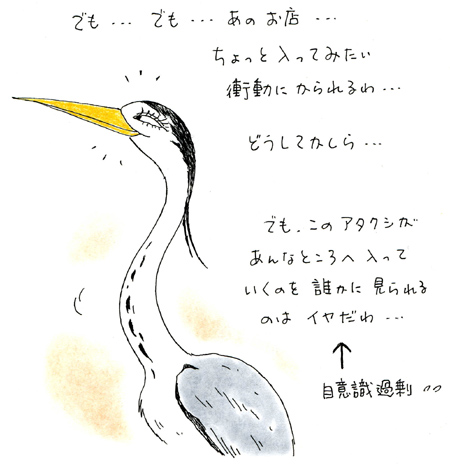 でも・・・ でも・・・ あのお店・・・
ちょっと入ってみたい
衝動にかられるわ・・・
どうしてかしら・・・
でも、このアタクシが
あんなところへ入って
いくのを誰かに見られる
のはイヤだわ・・・
自意識過剰